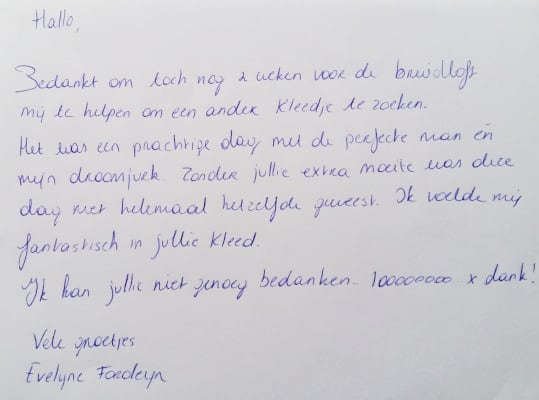 Hallo,
Bedankt om toch nog 2 weken voor de bruidloft
mij te helpen om een ander kleedje te zoeken.
Het was een prachtige dag met de perfecte man en
mijn droomjurk. Zonder jullie extra moeite was deze
dag niet helemaal hetzelfde geweest. Ik voelde mij
fantastisch in jullie kleed.
Ik kan jullie niet genoeg bedanken.. 100000000.. x dank!
Vele groetjes
Evelyne